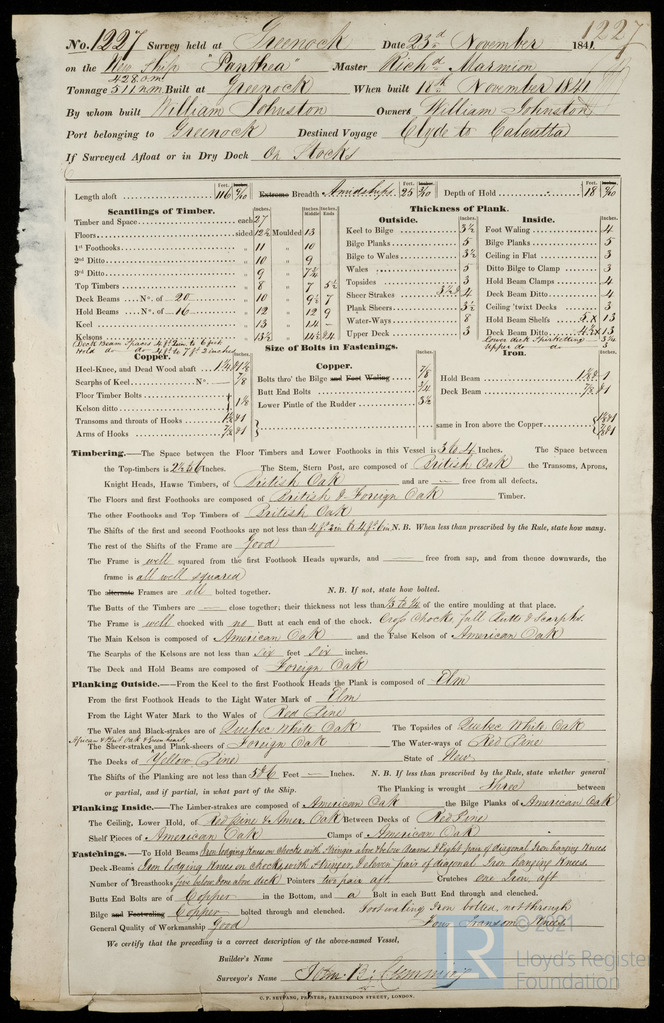 No. 1227 Survey held at Greenock Date 23d November 1841 1227
on the New Ship "Panthea" Master Richd Marmion
Tonnage 428 o.m. 511 n.m. Built at Greenock When built 18th November 1841
By whom built William Johnston Owners William Johnston
Port belonging to Greenock Destined Voyage Clyde to Calcutta
If Surveyed Afloat or in Dry Dock On Stocks
Length aloft Feet. 116 Extreme Breadth Amidships Feet. 25 Depth of Hold Feet. 18
Scantlings of Timber.
Timber and Space each 27
Floors sided 12½ Moulded 13
1st Foothooks „ 11 „ 10
2nd Ditto „ 10 „ 9
3rd Ditto „ 9 „ 7½
Top Timbers „ 8 „ 7 5½
Deck Beams No. of 20 „ 10 „ 9½ 7
Hold Beams No. of 16 „ 12 „ 12 9
Keel „ 13 „ 14 –
Kelsons „ 13½ „
Thickness of Plank.
Outside.
Keel to Bilge 3½
Bilge Planks 5
Bilge to Wales 3½
Wales 5
Topsides 3
Sheer Strakes 3½ & 4
Plank Sheers 3½
Water-Ways 8
Upper Deck 3
Inside.
Foot Waling 4
Bilge Planks 5
Ceiling in Flat 3
Ditto Bilge to Clamp 3
Hold Beam Clamps 4
Deck Beam Ditto 4
Ceiling 'twixt Decks 3
Hold Beam Shelfs 5 x 13
Deck Beam Ditto 4½ x 13
Lower deck Spirketting 3½
Upper do do 3
Size of Bolts in Fastenings.
Copper.
Heel-Knee, and Dead Wood abaft 1¼ & 1⅛
Scarphs of Keel No. — ⅞
Floor Timber Bolts
Kelson ditto 1⅛
Transoms and throats of Hooks 1⅛ & 1
Arms of Hooks ⅞ & 1
Copper.
Bolts thro' the Bilge and Foot Waling ⅞
Butt End Bolts ¾
Lower Pintle of the Rudder 3½
Iron.
Hold Beam 1⅛ & 1
Deck Beam ⅞ & 1
same in Iron above the Copper 1⅛ & 1 ⅞ & 1
Timbering.—The Space between the Floor Timbers and Lower Foothooks in this Vessel is 3 to 4 Inches. The Space between
the Top-timbers is 2½ to 6 Inches. The Stem, Stern Post, are composed of British Oak the Transoms, Aprons,
Knight Heads, Hawse Timbers, of British Oak and are — free from all defects.
The Floors and first Foothooks are composed of British & Foreign Oak Timber.
The other Foothooks and Top Timbers of British Oak
The Shifts of the first and second Foothooks are not less than 4 ft 2in to 4 ft 6in N. B. When less than prescribed by the Rule, state how many.
The rest of the Shifts of the Frame are Good
The Frame is well squared from the first Foothook Heads upwards, and — free from sap, and from thence downwards, the
frame is all well squared
The alternate Frames are all bolted together. N. B. If not, state how bolted.
The Butts of the Timbers are — close together; their thickness not less than ⅓ to ¼ of the entire moulding at that place.
The Frame is well chocked with no Butt at each end of the chock. Cross Chocks, full Butts & Scarphs.
The Main Kelson is composed of American Oak and the False Kelson of American Oak
The Scarphs of the Kelsons are not less than six feet six inches.
The Deck and Hold Beams are composed of Foreign Oak
Planking Outside.—From the Keel to the first Foothook Heads the Plank is composed of Elm
From the first Foothook Heads to the Light Water Mark of Elm
From the Light Water Mark to the Wales of Red Pine
The Wales and Black-strakes are of Quebec White Oak The Topsides of Quebec White Oak
African & Brit. Oak & Green heart.
The Sheer-strakes and Plank-sheers of Foreign Oak The Water-ways of Red Pine
The Decks of Yellow Pine State of New
The Shifts of the Planking are not less than 5 & 6 Feet — Inches. N. B. If less than prescribed by the Rule, state whether general
or partial, and if partial, in what part of the Ship. The Planking is wrought Three between
Planking Inside.—The Limber-strakes are composed of American Oak the Bilge Planks of American Oak
The Ceiling, Lower Hold, of Red Pine & Amer. Oak Between Decks of Red Pine
Shelf Pieces of American Oak Clamps of American Oak
Fastenings.—To Hold Beams Iron lodging Knees on chocks with Stringer above & below Beams, & Eight pair of diagonal Iron hanging Knees
Deck Beams Iron lodging Knees on chocks, with Stringer, & eleven pair of diagonal Iron hanging Knees.
Number of Breasthooks five below & one above deck Pointers two pair aft. Crutches one Iron aft
Butts End Bolts are of Copper in the Bottom, and a Bolt in each Butt End through and clenched.
Bilge and Footwaling Copper bolted through and clenched. Footwaling Iron bolted, not through
General Quality of Workmanship Good Four Transom Knees
We certify that the preceding is a correct description of the above-named Vessel,
Builder's Name
Surveyor's Name John B. Cumming
C. F. SEYFANG, PRINTER, FARRINGDON STREET, LONDON.
© 2021
Lloyd's Register
Foundation
LR